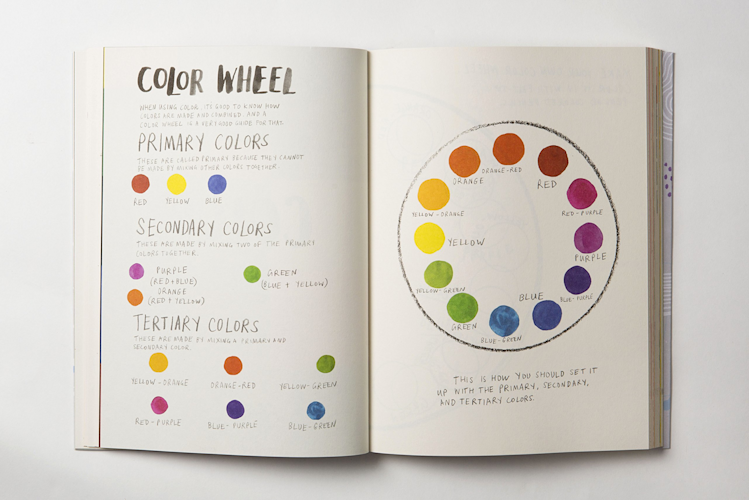 COLOR WHEEL
WHEN USING COLOR, ITS GOOD TO KNOW HOW
COLORS ARE MADE AND COMBINED, AND A
COLOR WHEEL IS A VERY GOOD GUIDE FOR THAT.
PRIMARY COLORS
THESE ARE CALLED PRIMARY BECAUSE THEY CANNOT
BE MADE BY MIXING OTHER COLORS TOGETHER.
RED YELLOW BLUE
SECONDARY COLORS
THESE ARE MADE BY MIXING TWO OF THE PRIMARY
COLORS TOGETHER.
PURPLE
(RED+BLUE)
ORANGE
(RED + YELLOW)
GREEN
(BLUE + YELLOW)
TERTIARY COLORS
THESE ARE MADE BY MIXING A PRIMARY AND
SECONDARY COLOR.
YELLOW-ORANGE ORANGE-RED YELLOW-GREEN
RED-PURPLE BLUE-PURPLE BLUE-GREEN
ORANGE-RED
ORANGE
RED
YELLOW-ORANGE
RED-PURPLE
YELLOW
PURPLE
YELLOW-GREEN
BLUE-PURPLE
BLUE
GREEN
BLUE-GREEN
THIS IS HOW YOU SHOULD SET IT
UP WITH THE PRIMARY, SECONDARY,
AND TERTIARY COLORS.